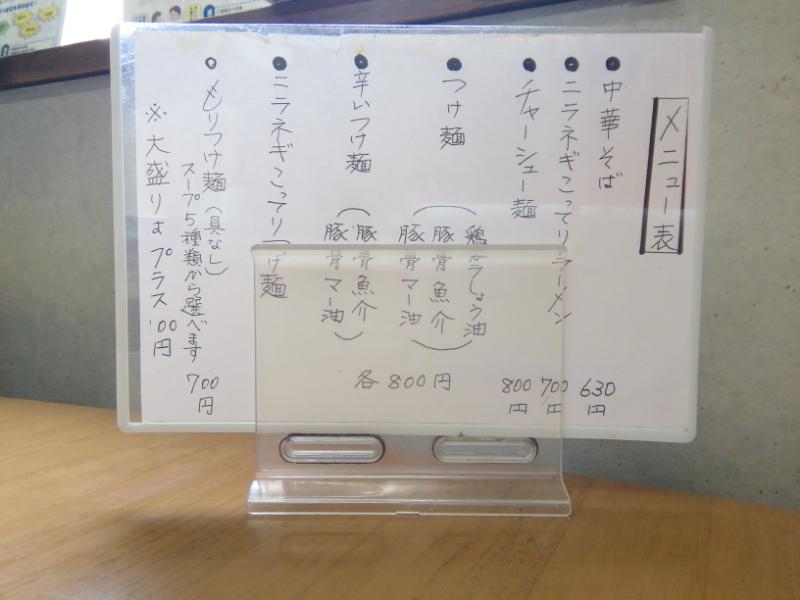 メニュー表
中華そば 630円
ニラネギこってりラーメン 700円
チャーシュー麺 800円
つけ麺
(鶏がらしょう油
豚骨魚介
豚骨マー油)
辛いつけ麺
(豚骨魚介
豚骨マー油)
ニラネギこってりつけ麺
各800円
もりつけ麺(具なし)
スープ5種類から選べます 700円
※大盛りはプラス100円